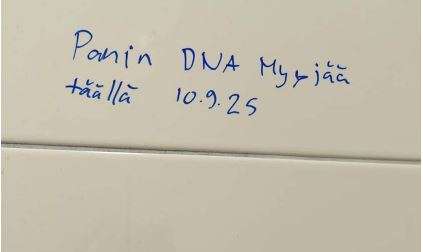 Panin DNA Myyjää
täällä 10.9.25